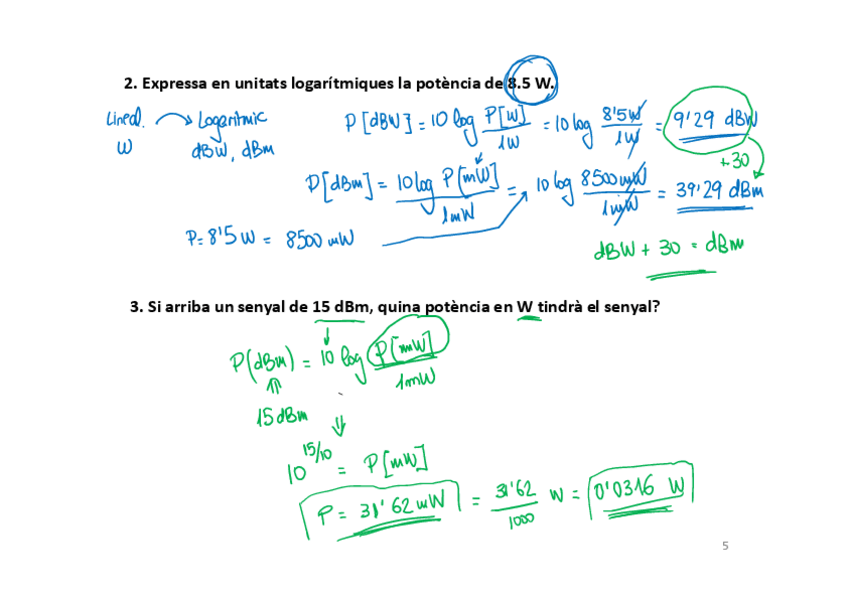 2. Expressa en unitats logarítmiques la potència de 8.5 W.
Lineal → Logaritmic
W dBW, dBm
P[dBW] = 10 log P[W] / 1W = 10 log 8'5W / 1W = 9'29 dBW
+30
P[dBm] = 10 log P[mW] / 1mW = 10 log 8500mW / 1mW = 39'29 dBm
P = 8'5 W = 8500 mW
dBW + 30 = dBm
3. Si arriba un senyal de 15 dBm, quina potència en W tindrà el senyal?
P(dBm) = 10 log P[mW] / 1mW
15 dBm
10^15/10 = P[mW]
P = 31'62 mW = 31'62 / 1000 W = 0'0316 W
5